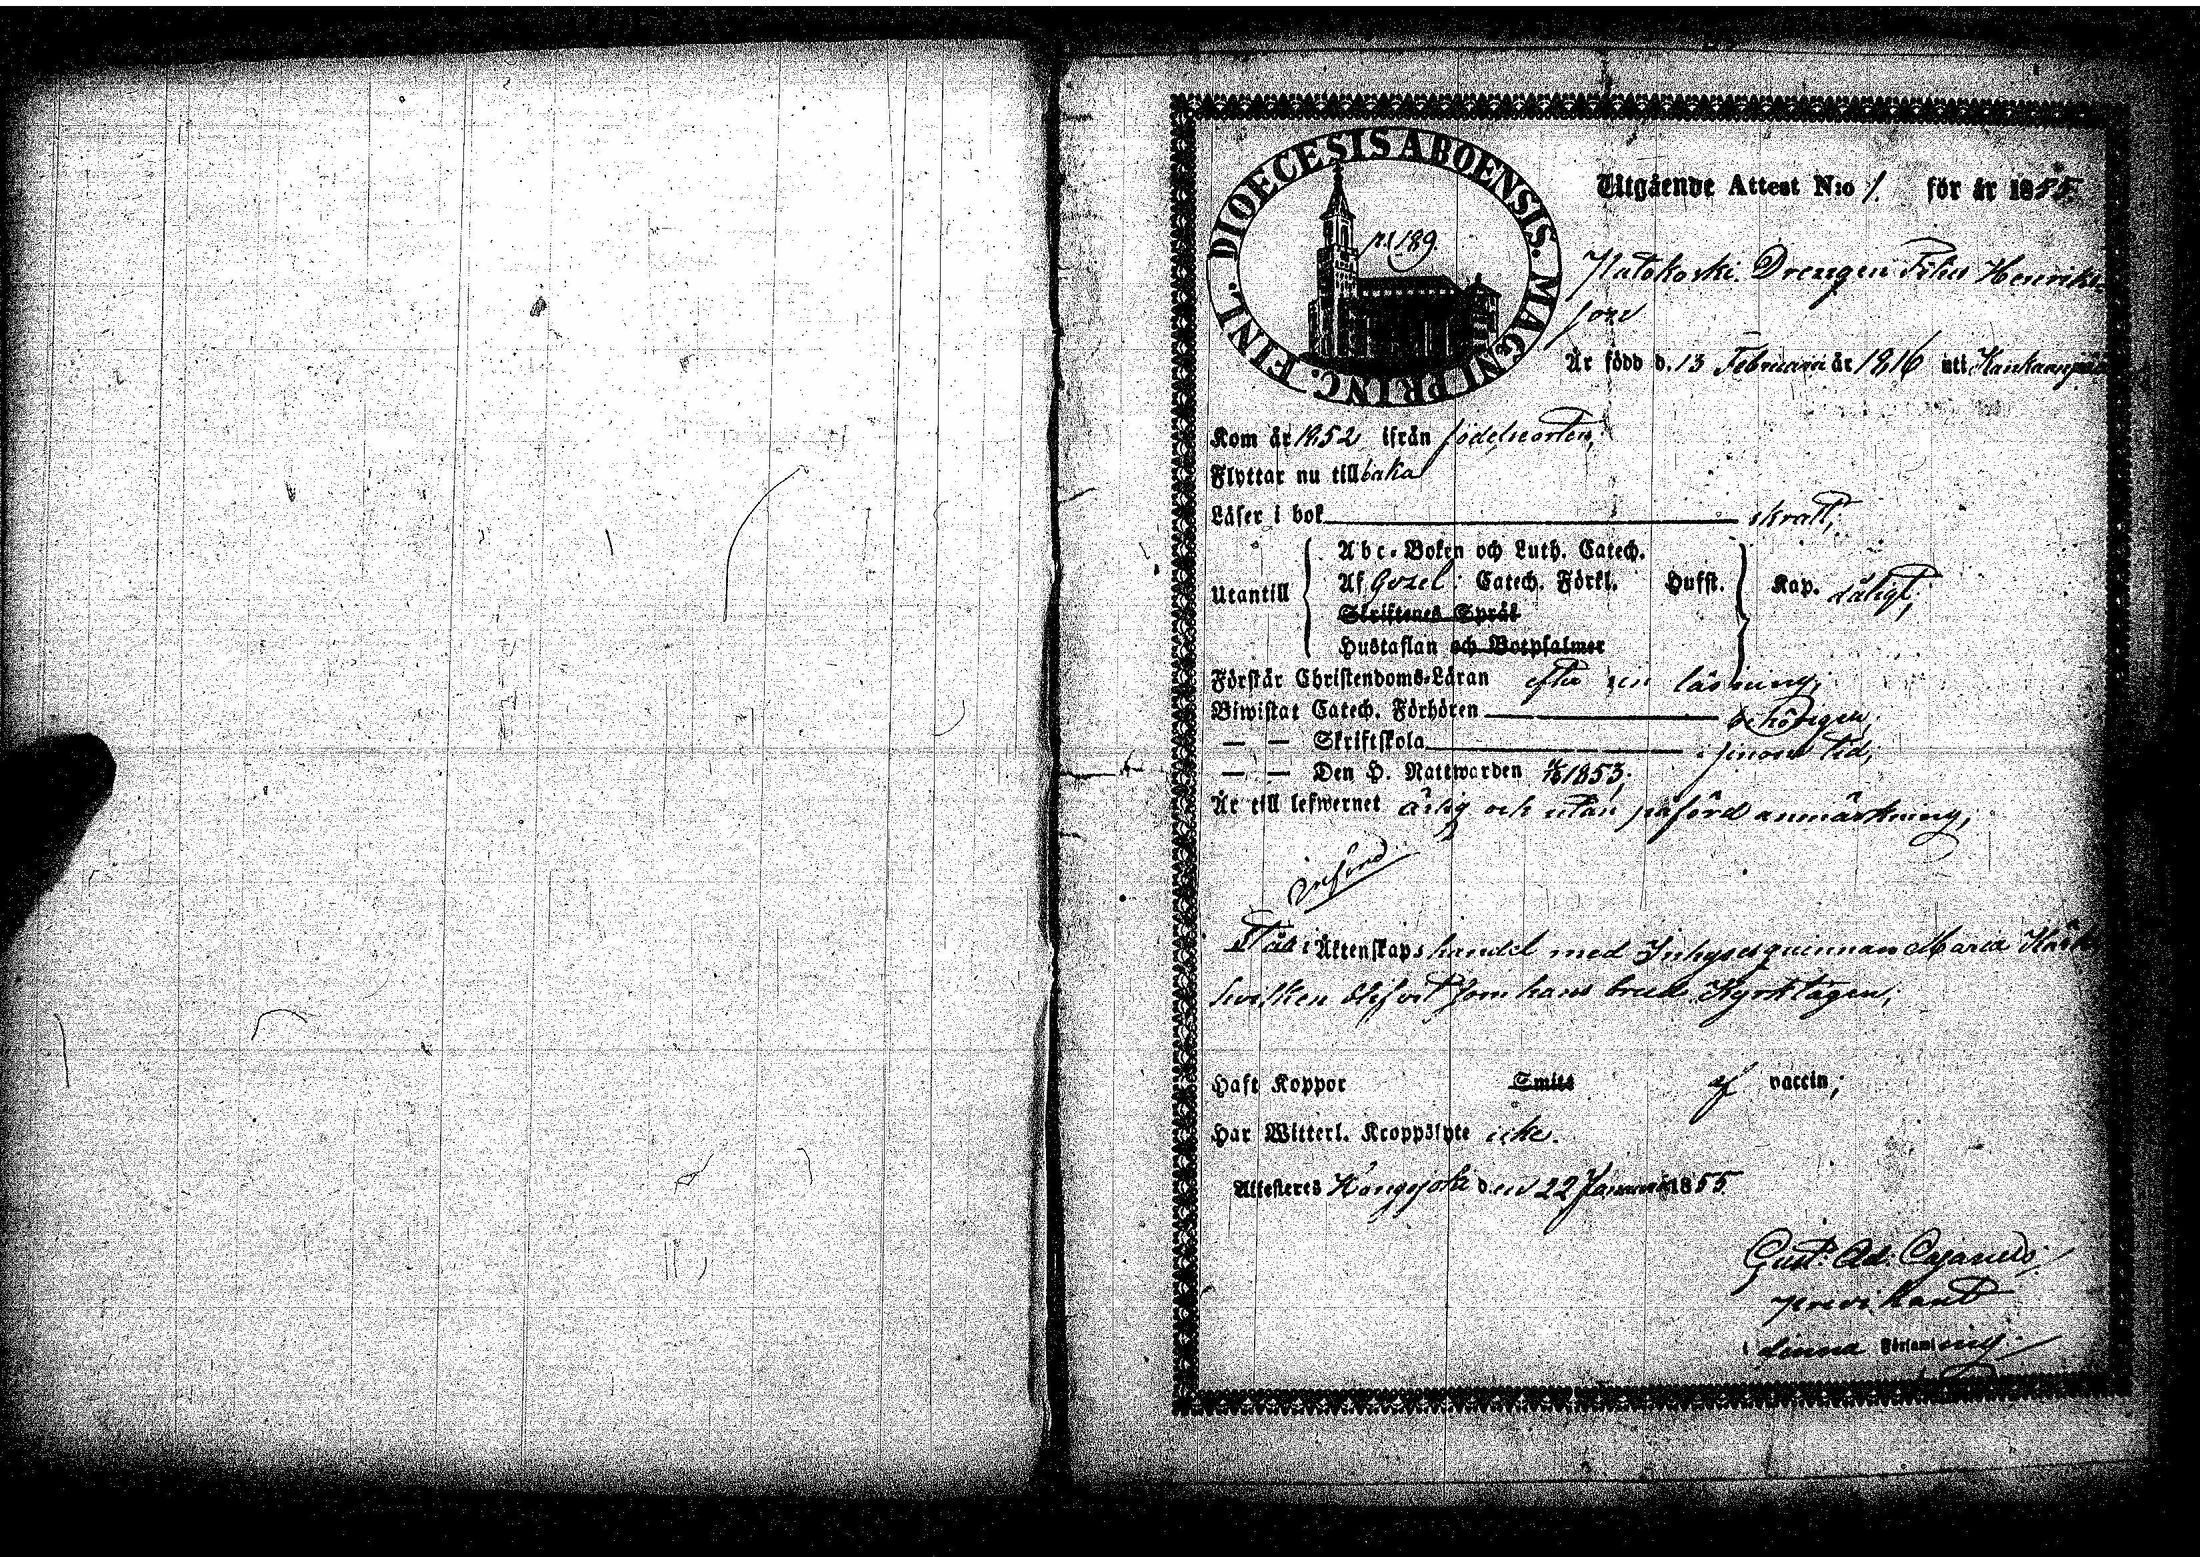 DIOECESIS ABOENSIS. MAGNI PRINC. FINL.
Utgående Attest N:o 1. för år 1855.
p. 189
Katokoski Drengen Filus Henriks-
son
Är född d. 13 Februari år 1816 uti Kankaanpää
Kom år 1852 ifrån födelseorten,
Flyttar nu tillbaka
Läser i bok svalt,
Abc-Boken och Luth. Catech.
Utantill Af Gezel. Catech. Förkl. Hufst. Kap. dåligt,
Skriftenes Språk
Hustaflan och Botpsalmer
Förstår Christendoms-Läran efter en läsning,
Biwistat Catech. Förhören behörigen,
— — Skriftskola
— — Den H. Nattwarden 1853.
Är till lefwernet ärlig och utan påförd anmärkning,
införd
Står i Äktenskaps handel med Inhysesquinnan Maria
hvilken blifvit som hans brud Kyrktagen,
Haft Koppor Smitt af vaccin,
Har Witterl. Kroppslyte icke.
Attesteres Hongojoki den 22 Januari 1855.
Gust. Ad. Cajanus
predikant
i denna Församling.